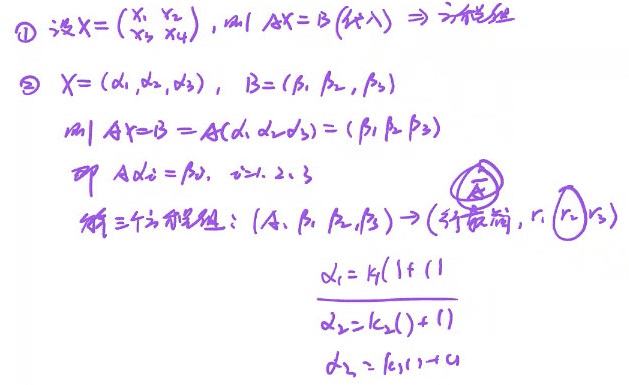 ① 设X=(x₁ x₂ x₃ x₄), 则 AX=B(代入) ⇒ 方程组
② X=(α₁,α₂,α₃), B=(β₁ β₂,β₃)
则 AX=B = A(α₁ α₂ α₃)=(β₁ β₂ β₃)
即 Aαi=βi, i=1.2.3
解三个方程组: (A, β₁ β₂,β₃)→(行最简, r₁ r₂ r₃)
α₁=k₁( )+( )
α₂=k₂()+()
α₃=k₃()+()